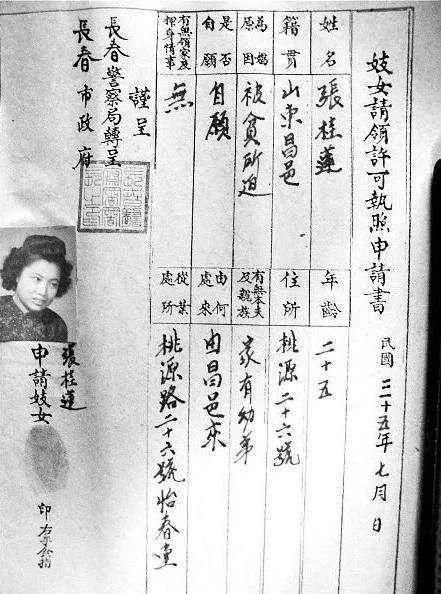 妓女請領許可執照申請書
民國三十五年七月 日
姓名 張桂蓮 年齡 二十五
籍貫 山東昌邑 住所 桃源二十六號
為娼原因 被貧所迫 有無本夫及親族 家有幼弟
是否自願 自願 由何處來 由昌邑來
有無領家及押身情事 無 從業處所 桃源路二十六號怡春堂
謹呈
長春警察局轉呈
長春市政府
申請妓女 張桂蓮
印右手食指